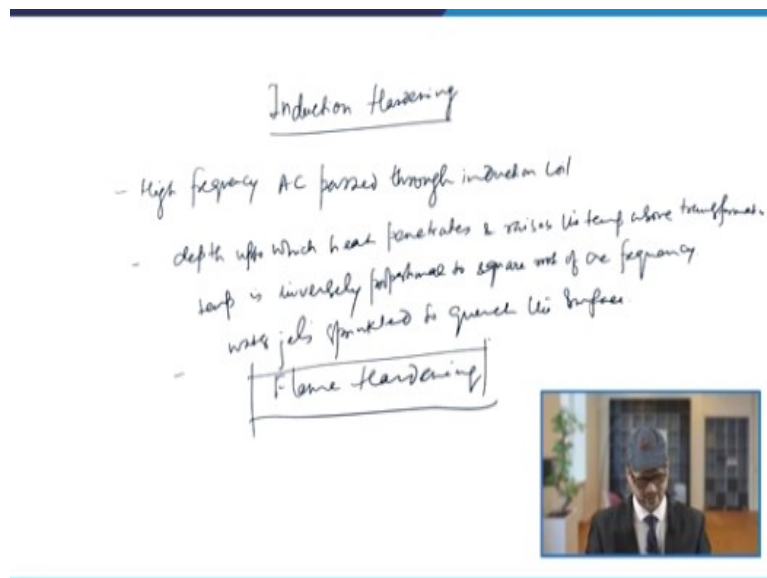 Induction Hardening
- High freqency AC passed through induction coil
- depth upto which heat penetrates & raises its temp above transformat.
temp is inversely proportional to square root of ac frequency
- water jets sprinkled to quench the surface.
Flame Hardening